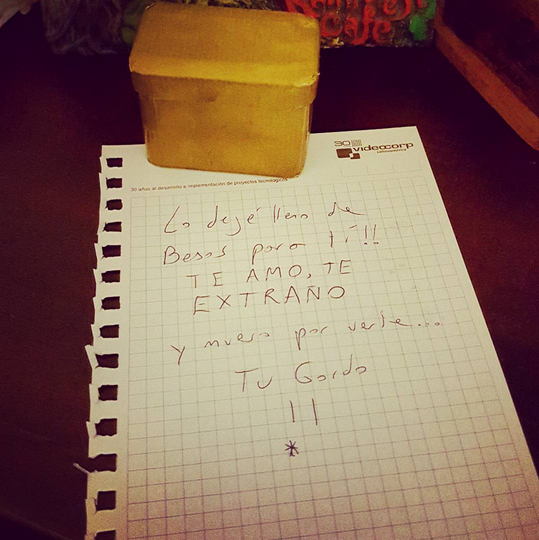 Rainforest
Cafe
30
videocorp
Latinoamérica
30 años al desarrollo e implementación de proyectos tecnológicos
Lo dejé lleno de
Besos para tí!!
TE AMO, TE
EXTRAÑO
y muero por verte...
Tu Gordo
!!
*